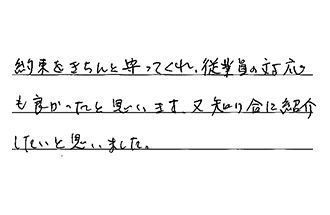 約束をきちんと守ってくれ、従業員の対応
も良かったと思います。又知り合に紹介
したいと思いました。